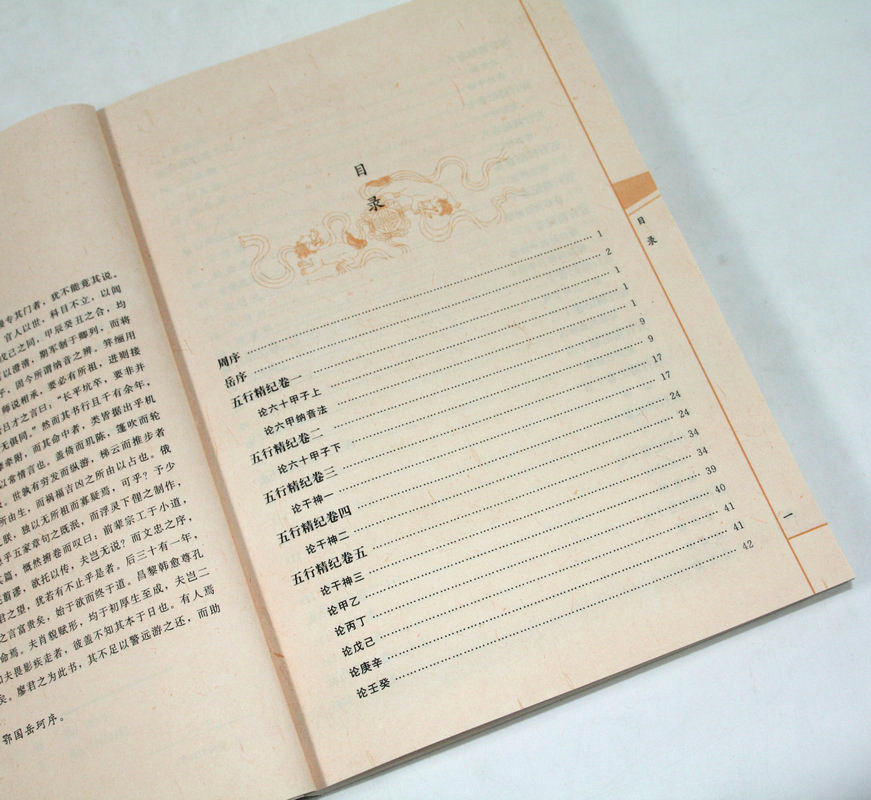 专其门者，犹不能竟其说。
官人以世，科目不立，以闾
戊己之同，甲辰癸丑之合，均
以澄清，期军制于卿列，而将
乎，因今所谓纳音之辨。笄缅用
师说相承，要必有所祖，进则接
吕才之言曰：“长平坑卒，要非并
无俱同。”然而其书行且千有余年，
牵附，而其命中者，类皆据出乎机
以常情言也。盖倚而玑陈，篷吹而轮
世孰有穷发而纵游，梯云而推步者
所由生，而祸福吉凶之所由以占也。俄
朕，独以无所祖而寡疑焉，可乎？予少
乎五家章句之既泯，而浮灵下俚之制作，
篇，慨然捬卷而叹曰，前辈宗工于小道，
首谬，欲托以传，夫岂无说？而文忠之序，
君之望，犹若有不止乎是者。后三十有一年，
之言富贵矣，始于欲而终于道。昌黎韩愈尊孔
命焉。夫肖貌赋形，均于初厚生至成，夫岂二
夫畏影疾走者，彼盖不知其本于日也。有人焉
矣。廖君之为此书，其不足以警远游之还，而助
鄂国岳珂序。
目
录
周序 1
岳序 2
五行精纪卷一 1
论六十甲子上 1
论六甲纳音法 1
五行精纪卷二 9
论六十甲子下 9
五行精纪卷三 17
论干神一 17
五行精纪卷四 24
论干神二 24
五行精纪卷五 34
论干神三 34
论甲乙 39
论丙丁 40
论戊己 41
论庚辛 41
论壬癸 42
目
录
一